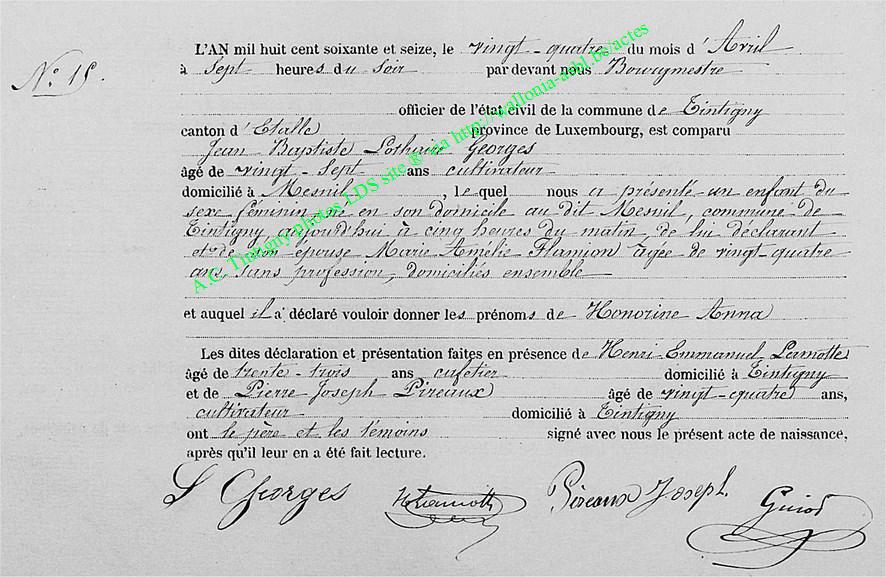 N.o 15.
L'AN mil huit cent soixante et seize, le vingt-quatre du mois d'Avril
à sept heures du soir par devant nous Bourgmestre
officier de l'état civil de la commune de Tintigny
canton d'Etalle province de Luxembourg, est comparu
Jean Baptiste Lothaire Georges
âgé de vingt-sept ans cultivateur
domicilié à Mesnil, lequel nous a présenté un enfant du
sexe féminin, né en son domicile au dit Mesnil, commune de
Tintigny aujourd'hui à cinq heures du matin de lui déclarant
et de son épouse Marie Amélie Flamion agée de vingt-quatre
ans, sans profession, domiciliés ensemble
et auquel il a déclaré vouloir donner les prénoms de Honorine Anna
Les dites déclaration et présentation faites en présence de Henri Emmanuel Lamotte
âgé de trente-trois ans cafetier domicilié à Tintigny
et de Pierre Joseph Pireaux âgé de vingt-quatre ans,
cultivateur domicilié à Tintigny
ont le père et les témoins signé avec nous le présent acte de naissance,
après qu'il leur en a été fait lecture.
L Georges Pireaux Joseph.
A.C. Tintigny photos LDS site ® via http://wallonia-asbl.be/actes